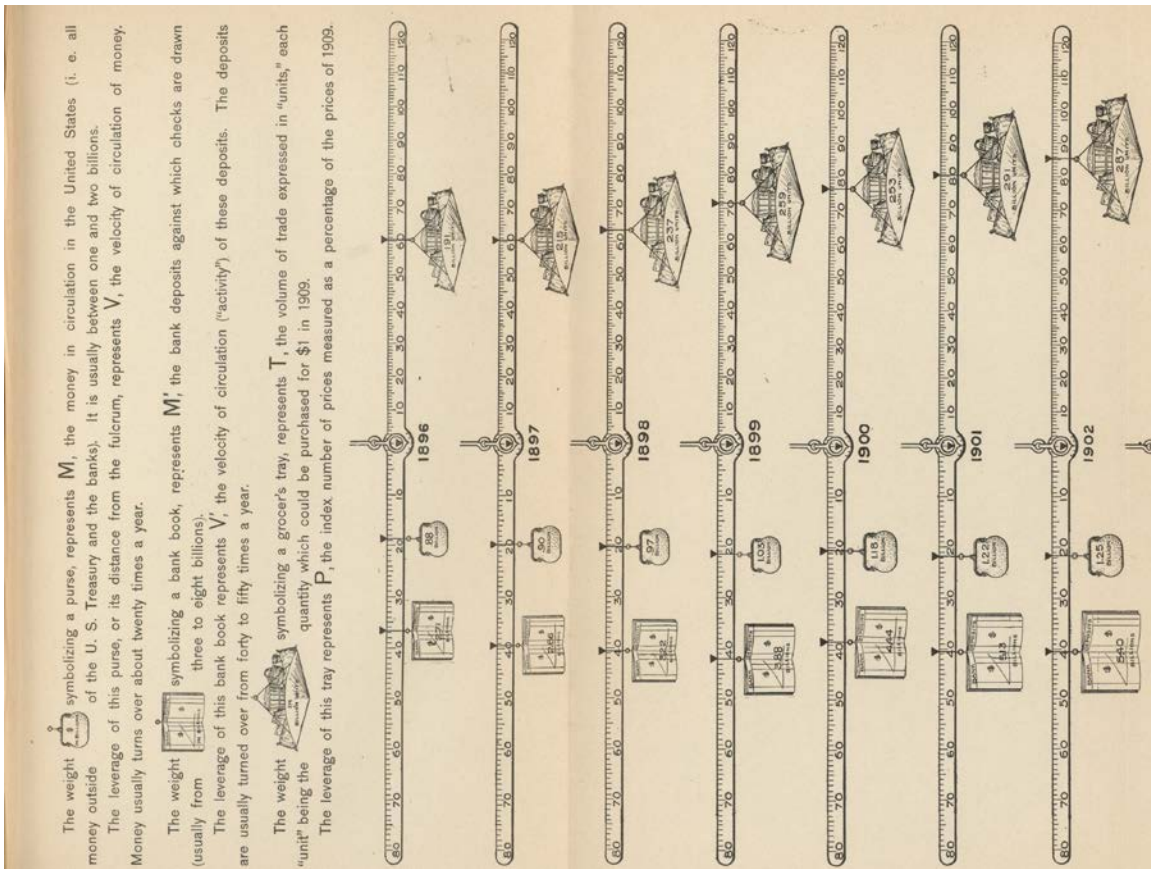 The weight symbolizing a purse, represents M, the money in circulation in the United States (i. e. all
money outside of the U. S. Treasury and the banks). It is usually between one and two billions.
The leverage of this purse, or its distance from the fulcrum, represents V, the velocity of circulation of money.
Money usually turns over about twenty times a year.
The weight symbolizing a bank book, represents M', the bank deposits against which checks are drawn
(usually from three to eight billions).
The leverage of this bank book represents V', the velocity of circulation ("activity") of these deposits. The deposits
are usually turned over from forty to fifty times a year.
The weight symbolizing a grocer's tray, represents T, the volume of trade expressed in "units," each
"unit" being the quantity which could be purchased for $1 in 1909.
The leverage of this tray represents P, the index number of prices measured as a percentage of the prices of 1909.
80 70 60 50 40 30 20 10 10 20 30 40 50 60 70 80 90 100 110 120
.88
191
1896
80 70 60 50 40 30 20 10 10 20 30 40 50 60 70 80 90 100 110 120
.90
215
BILLION UNITS
1897
80 70 60 50 40 30 20 10 10 20 30 40 50 60 70 80 90 100 110 120
.97
237
BILLION UNITS
1898
80 70 60 50 40 30 20 10 10 20 30 40 50 60 70 80 90 100 110 120
3.88
BILLIONS
1.03
BILLION
259
BILLION UNITS
1899
80 70 60 50 40 30 20 10 10 20 30 40 50 60 70 80 90 100 110 120
4.44
BILLIONS
1.18
BILLION
253
BILLION UNITS
1900
80 70 60 50 40 30 20 10 10 20 30 40 50 60 70 80 90 100 110 120
5.13
BILLIONS
1.22
BILLION
291
BILLION UNITS
1901
80 70 60 50 40 30 20 10 10 20 30 40 50 60 70 80 90 100 110 120
5.40
BILLIONS
1.25
BILLION
287
BILLION UNITS
1902